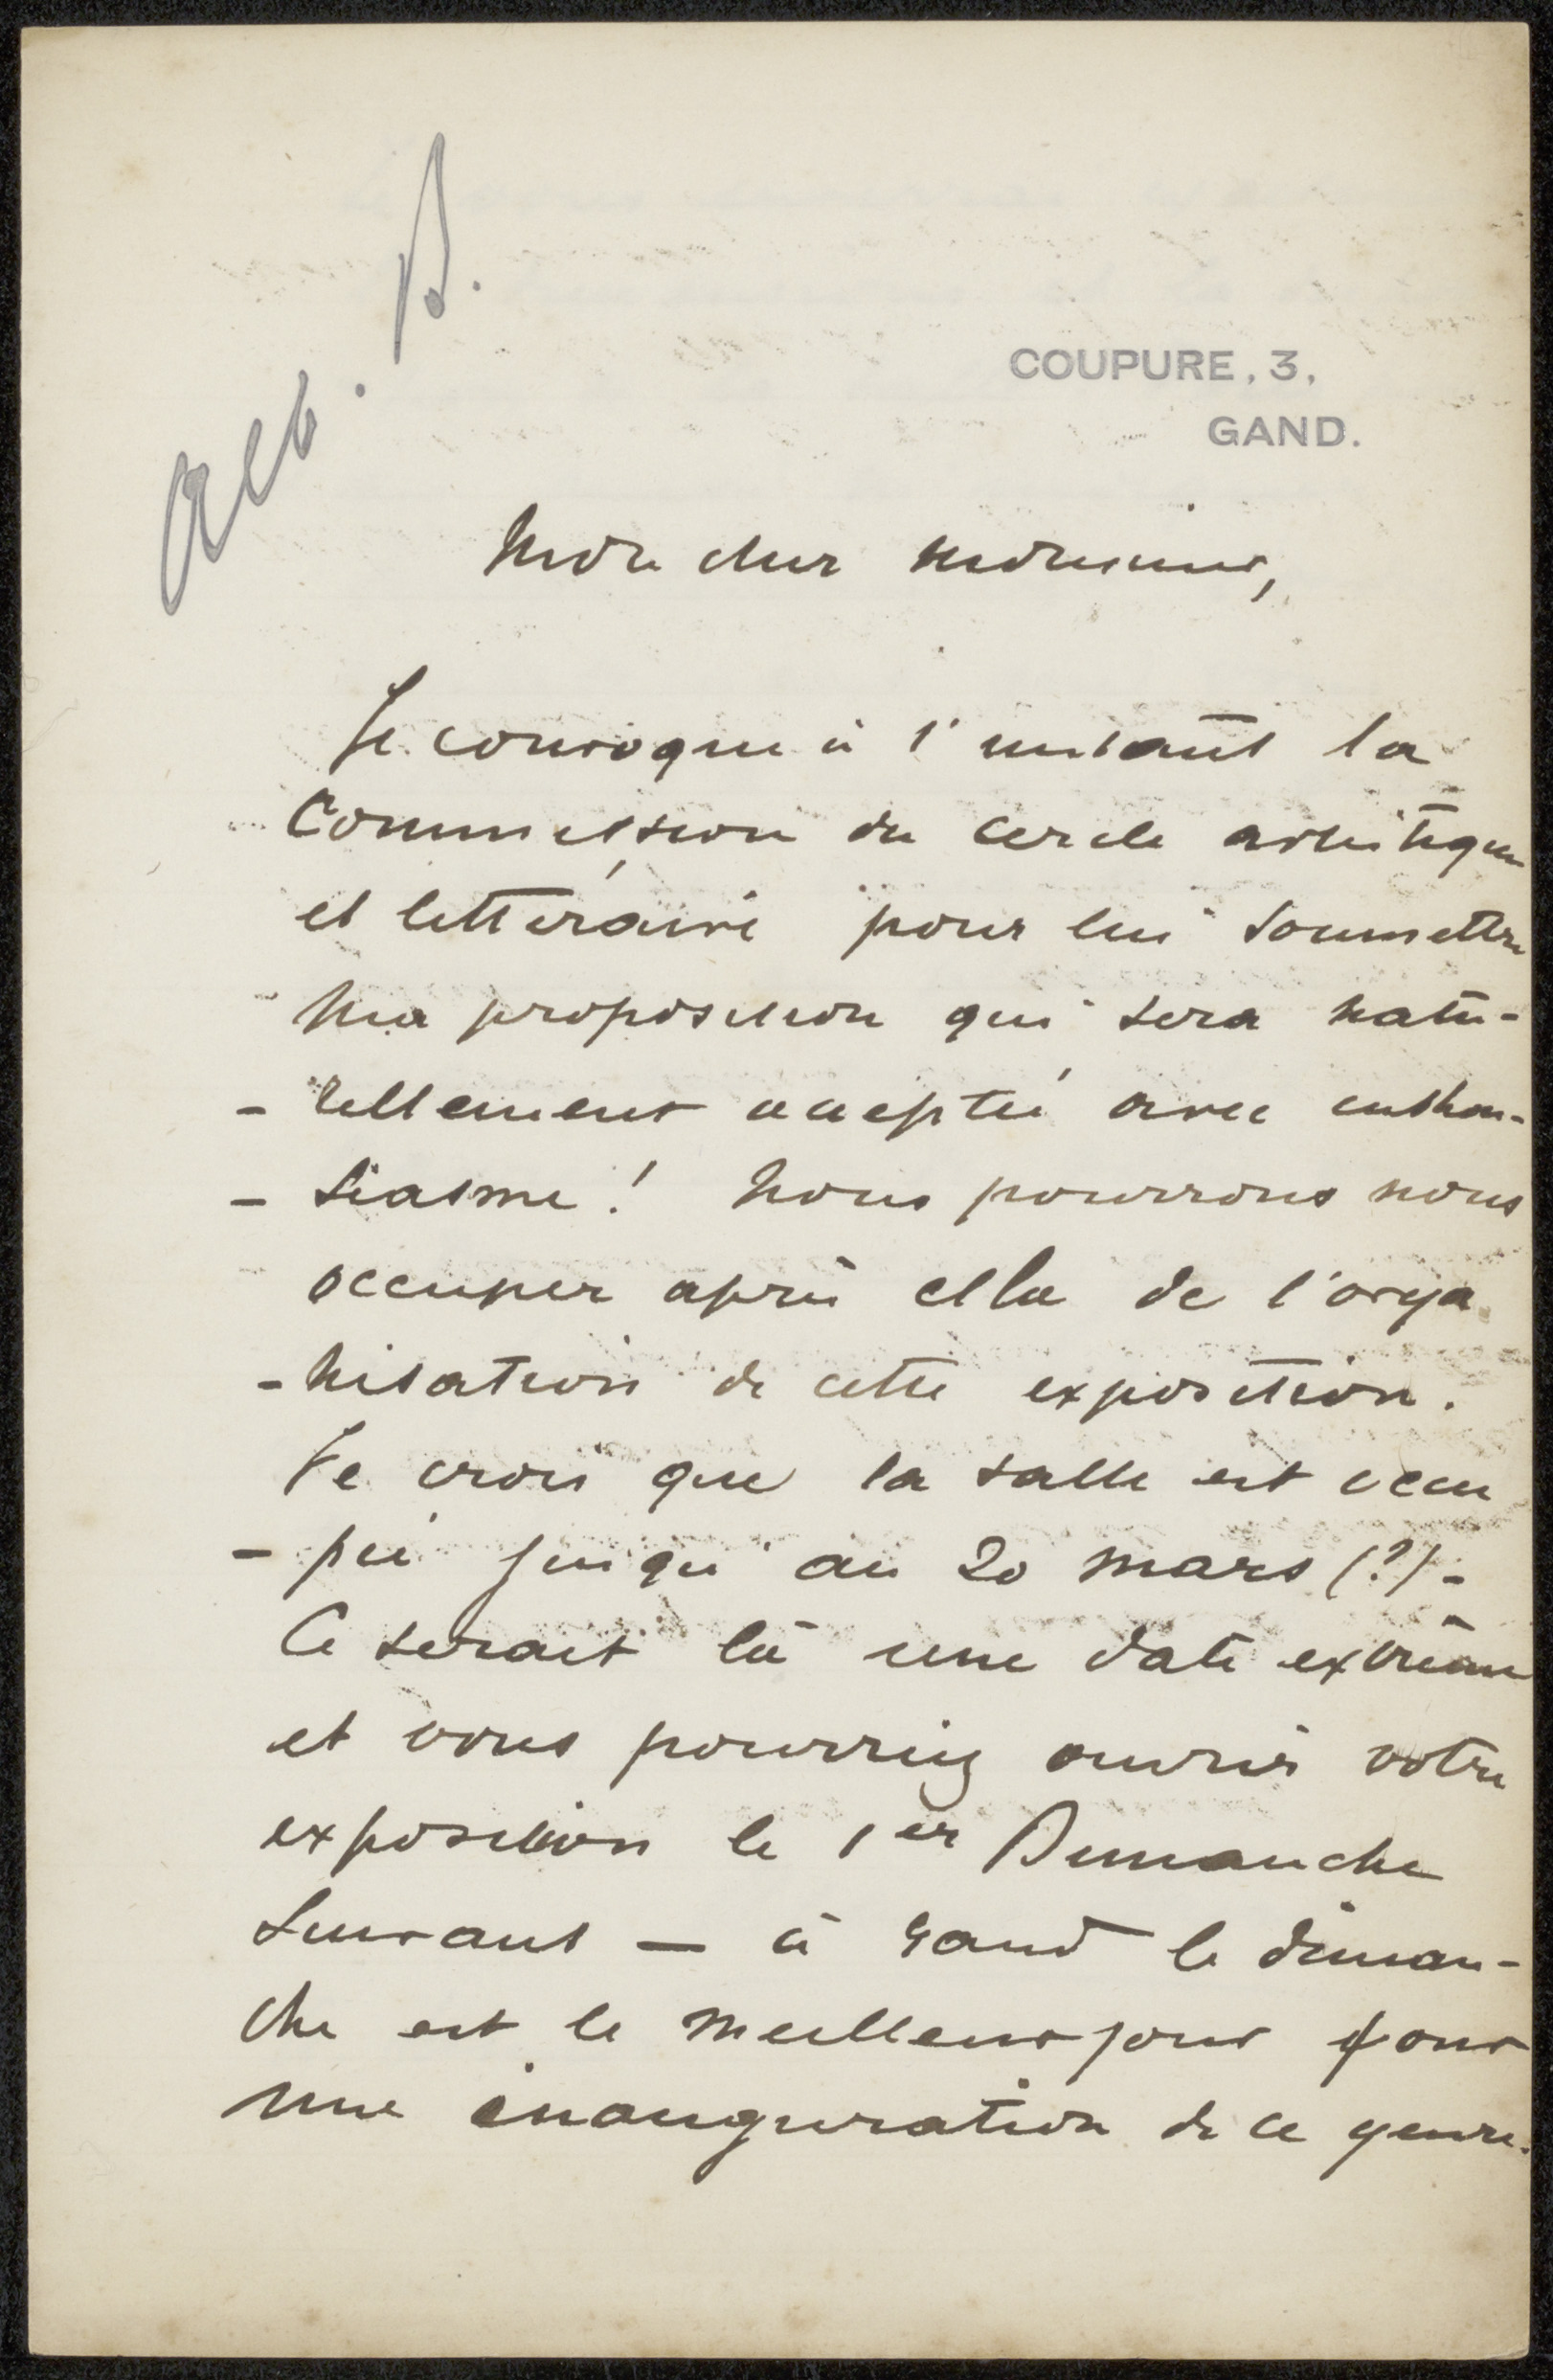 Alb. B.
COUPURE, 3,
GAND.
Mon cher monsieur,
Je convoque à l'instant la
Commission du cercle artistique
et littéraire pour lui soumettre
ma proposition qui sera natu-
- rellement acceptée avec enthou-
- siasme! Nous pourrons nous
occuper après cela de l'orga
- nisation de cette exposition.
Je crois que la salle est occu
- pée jusqu'au 20 mars (?) -
Ce serait là une date extrême
et vous pourriez ouvrir votre
exposition le 1er Dimanche
suivant — à Gand le diman-
che est le meilleur jour pour
une inauguration de ce genre.